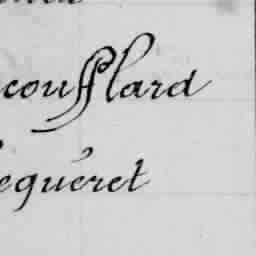 coufflard
equéret